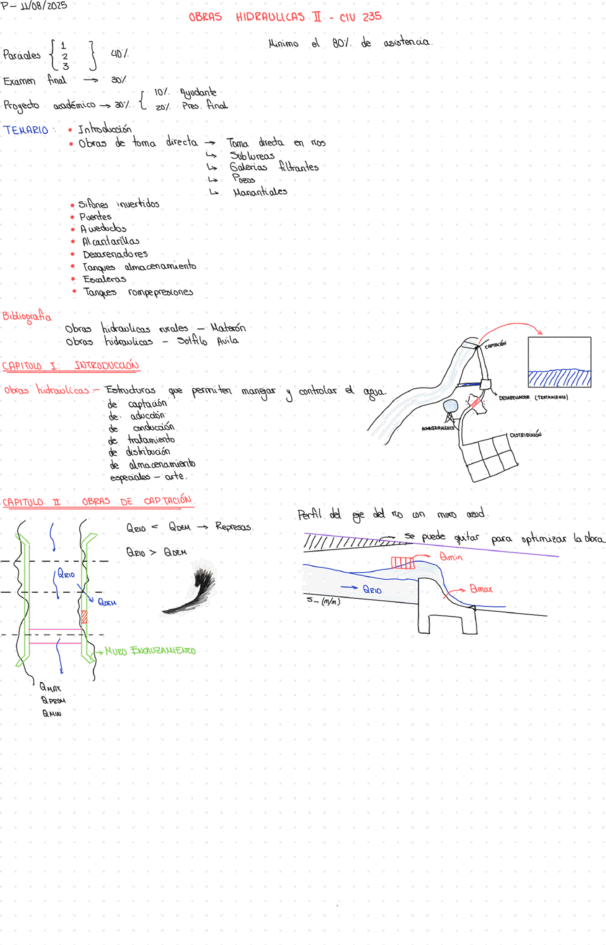 P- 11/08/2025
OBRAS HIDRAULICAS II - CIV 235
Minimo el 80% de asistencia.
Parciales { 1 2 3 } 40%
Examen final → 30%
Proyecto académico → 30% { 10% Ayudante
20% Pres. final
TEMARIO: • Introducción
• Obras de toma directa → Toma directa en rios
↳ Sublureas
↳ Galerías filtrantes
↳ Pozos
↳ Manantiales
• Sifones invertidos
• Puentes
• Aueductos
• Alcantarillas
• Desarenadores
• Tanques almacenamiento
• Escaleras
• Tanques rompepresiones
Bibliografia
Obras hidraulicas rurales - Materón
Obras hidraulicas - Sotelo Avila
CAPITULO I: INTRODUCCIÓN
Obras hidraulicas - Estructuras que permiten manejar y controlar el agua.
de captación
de aducción
de conducción
de tratamiento
de distribución
de almacenamiento
especiales - arte.
CAPTACIÓN
DESARENADOR (TRATAMIENTO)
ALMACENAMIENTO
DISTRIBUCIÓN
CAPITULO II: OBRAS DE CAPTACIÓN
QRIO < QDEM → Represas.
QRIO > QDEM
QRIO
QDEM
MURO ENCAUZAMIENTO
QMAX
QPROM
QMIN
Perfil del eje del rio con muro azud.
se puede quitar para optimizar la obra
Qmin
QRIO
Qmax
S - (m/m)